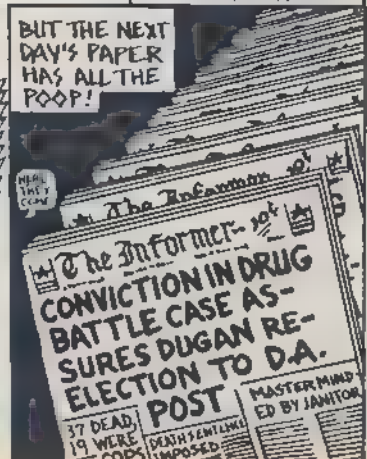 BUT THE NEXT
DAY'S PAPER
HAS ALL THE
POOP!
HERE
THEY
COME
The Informer
The Informer 10¢
CONVICTION IN DRUG
BATTLE CASE AS-
SURES DUGAN RE-
ELECTION TO D.A.
POST
37 DEAD,
19 WERE
COPS
DEATH SENTENCE
IMPOSED
MASTERMIND
ED BY JANITOR